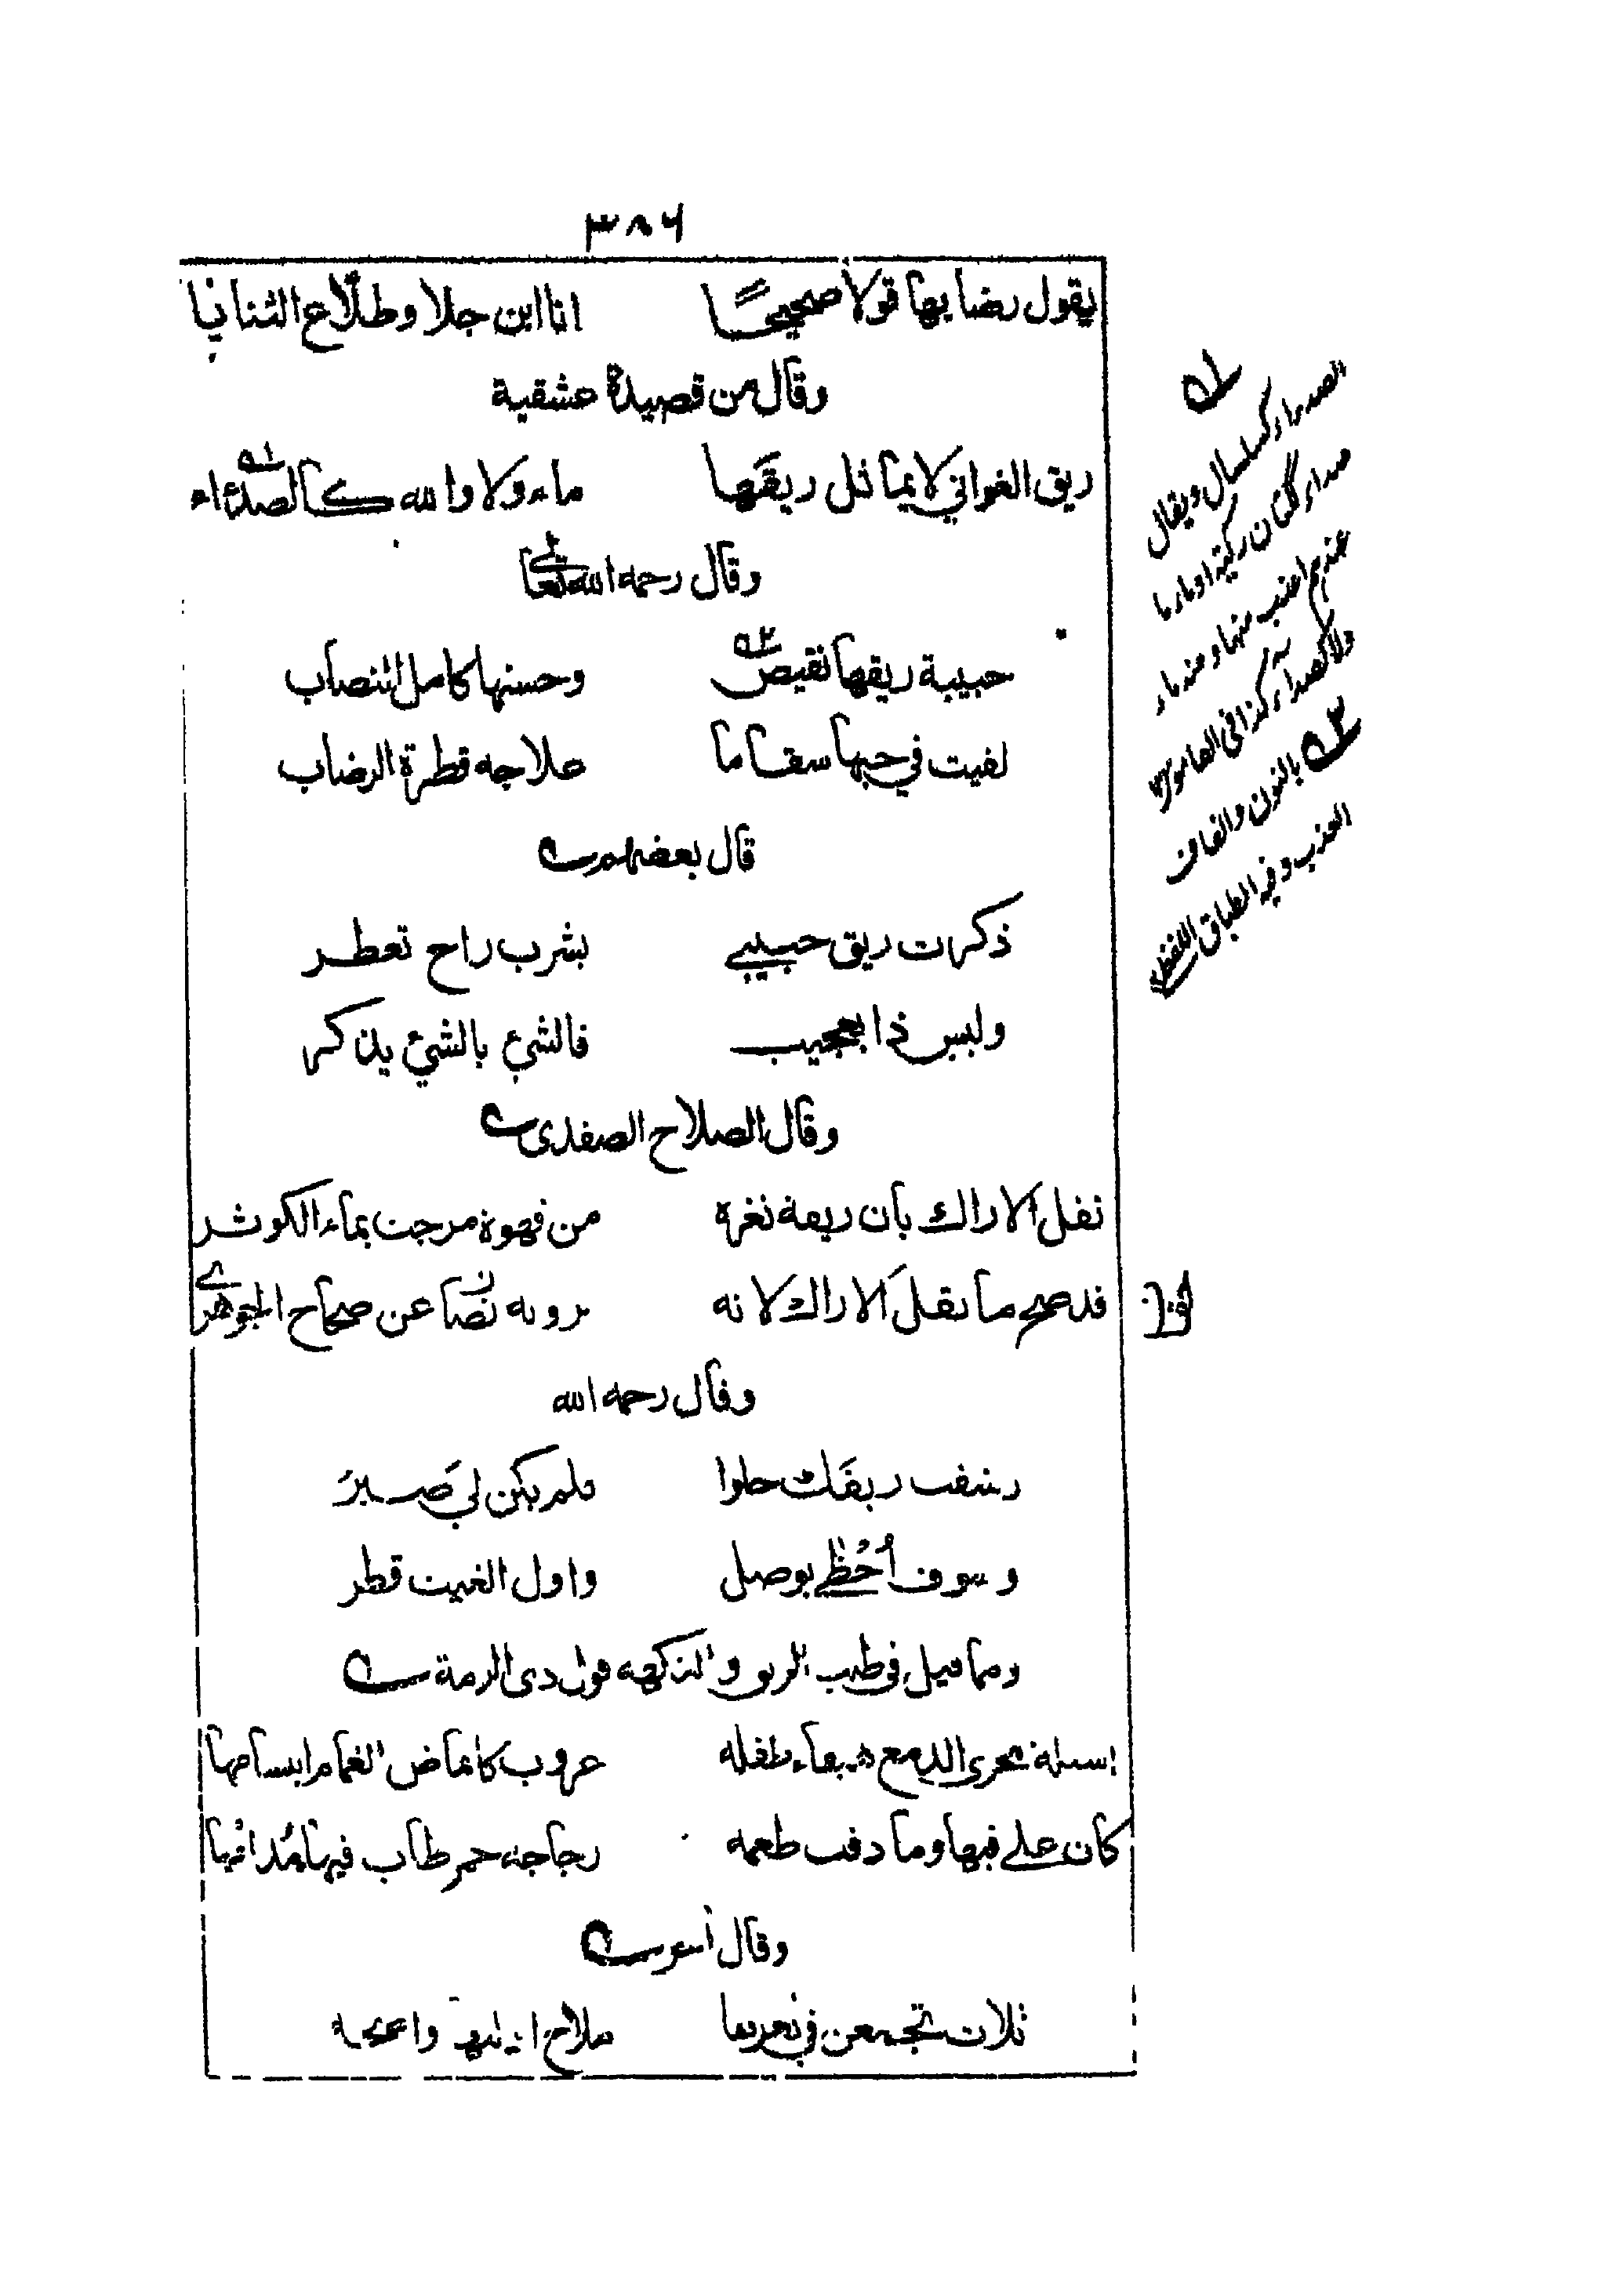 ٣٨٦
يقول رضابها قولا صحيحًا انا ابن جلا وطلّاع الثنايا
وقال من قصيدة عشقية
ريق الغواني لا يماثل ريقها ماء ولا والله كالصداء
وقال رحمه الله تعالى
حبيبة ريقها نقيص وحسنها كامل النصاب
لقيت في حبها سقاما علاجه قطرة الرضاب
قال بعضهم
ذكرت ريق حبيبي بشرب راح تعطر
وليس ذا بعجيب فالشيء بالشيء يذكر
وقال الصلاح الصفدى
نقل الاراك بان ريقة ثغره من قهوة مزجت بماء الكوثر
قد صح ما نقل الاراك لانه يرويه نصا عن صحاح الجوهري
وقال رحمه الله
رشفت ريقك حلوا فلم يكن لي صبر
وسوف أحظى بوصل واول الغيث قطر
ومما قيل في طيب الريق والنكهه قول ذى الرمة
اسيلة مجرى الدمع هيفاء طفلة عروب كايماض الغمام ابتسامها
كان على فيها وما ذقت طعمه زجاجة خمر طاب فيها مدامها
وقال آخر
ثلاث تجمعن في ثغرها ملاح
الصداء كسلسال ويقال
صداء ككتان ركية او ماء ما
عندهم اعذب منها ومنه ماء
ولا كصداء كذا في القاموس
بالنون والقاف
العذب وفيه الطباق اللفظي